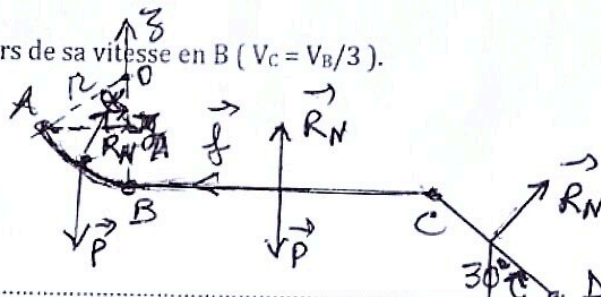 rs de sa vitesse en B ( V_C = V_B/3 ).
z
O
r
α
A
R_N
f
R_N
B
P
P
C
R_N
30°
D